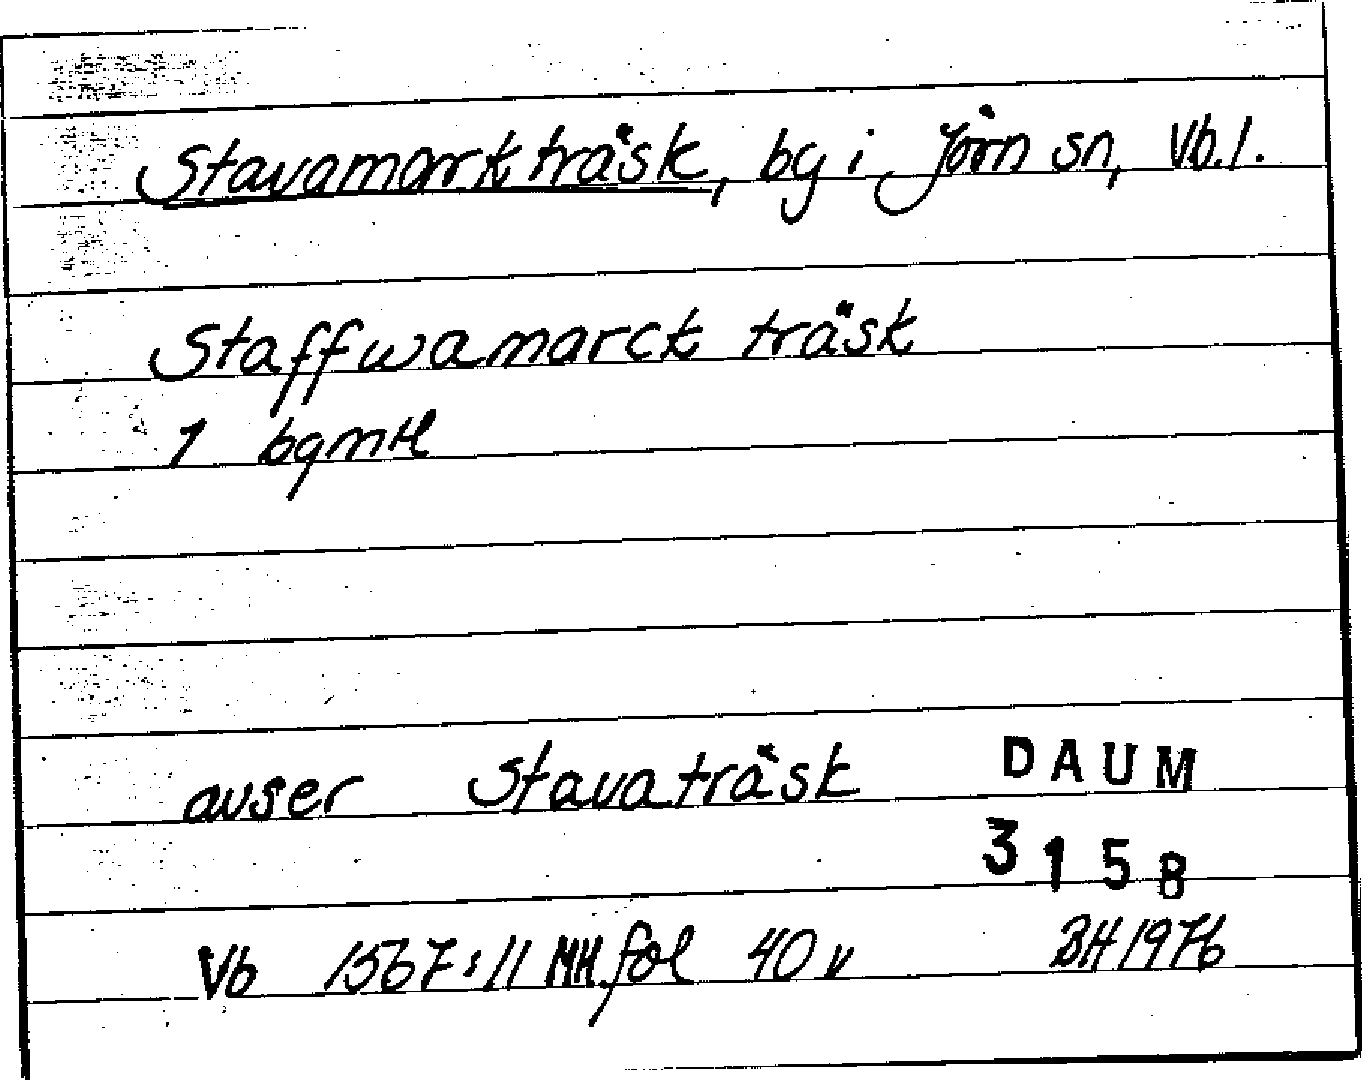 Stavamarkträsk, by i Jörn sn, Vb. l.
Staffwamarck träsk
1 bgmH
avser Stavaträsk
DAUM
3158
Vb 1567:11 MH. fol 40 v
BH 1976